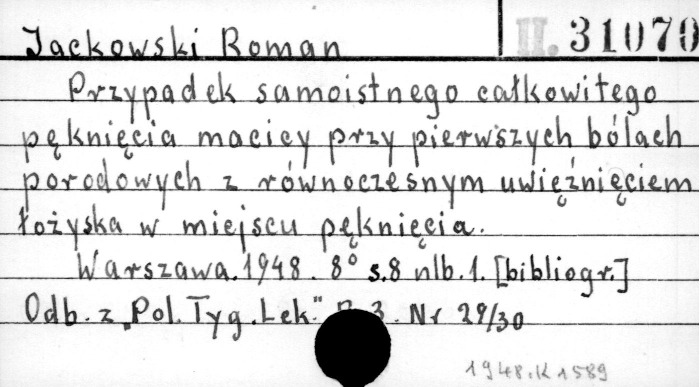 II. 31070
Jackowski Roman
Przypadek samoistnego całkowitego
pęknięcia macicy przy pierwszych bólach
porodowych z równoczesnym uwięźnięciem
łożyska w miejscu pęknięcia.
Warszawa. 1948. 8° s.8 nlb.1. [bibliogr.]
Odb. z "Pol. Tyg. Lek." R. 3. Nr 29/30
1948.K 1589